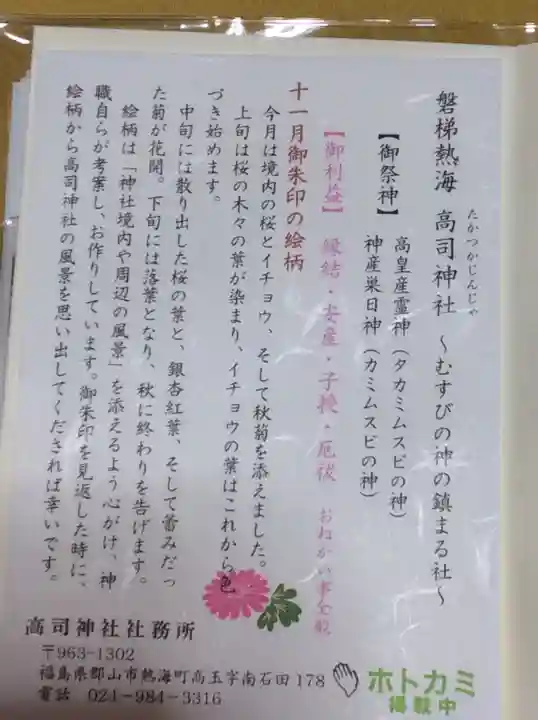 たかつかじんじゃ
磐梯熱海 高司神社 ～むすびの神の鎮まる社～
【御祭神】 高皇産霊神（タカミムスビの神）
神産巣日神（カミムスビの神）
【御利益】 縁結・安産・子授・厄祓 おねがい事全般
十一月御朱印の絵柄
今月は境内の桜とイチョウ、そして秋菊を添えました。
上旬は桜の木々の葉が染まり、イチョウの葉はこれから色
づき始めます。
中旬には散り出した桜の葉と、銀杏紅葉、そして蕾みだっ
た菊が花開。下旬には落葉となり、秋に終わりを告げます。
絵柄は「神社境内や周辺の風景」を添えるよう心がけ、神
職自らが考案し、お作りしています。御朱印を見返した時に、
絵柄から高司神社の風景を思い出してくだされば幸いです。
高司神社社務所
〒963-1302
福島県郡山市熱海町高玉字南石田178
電話 024-984-3316
ホトカミ
掲載中